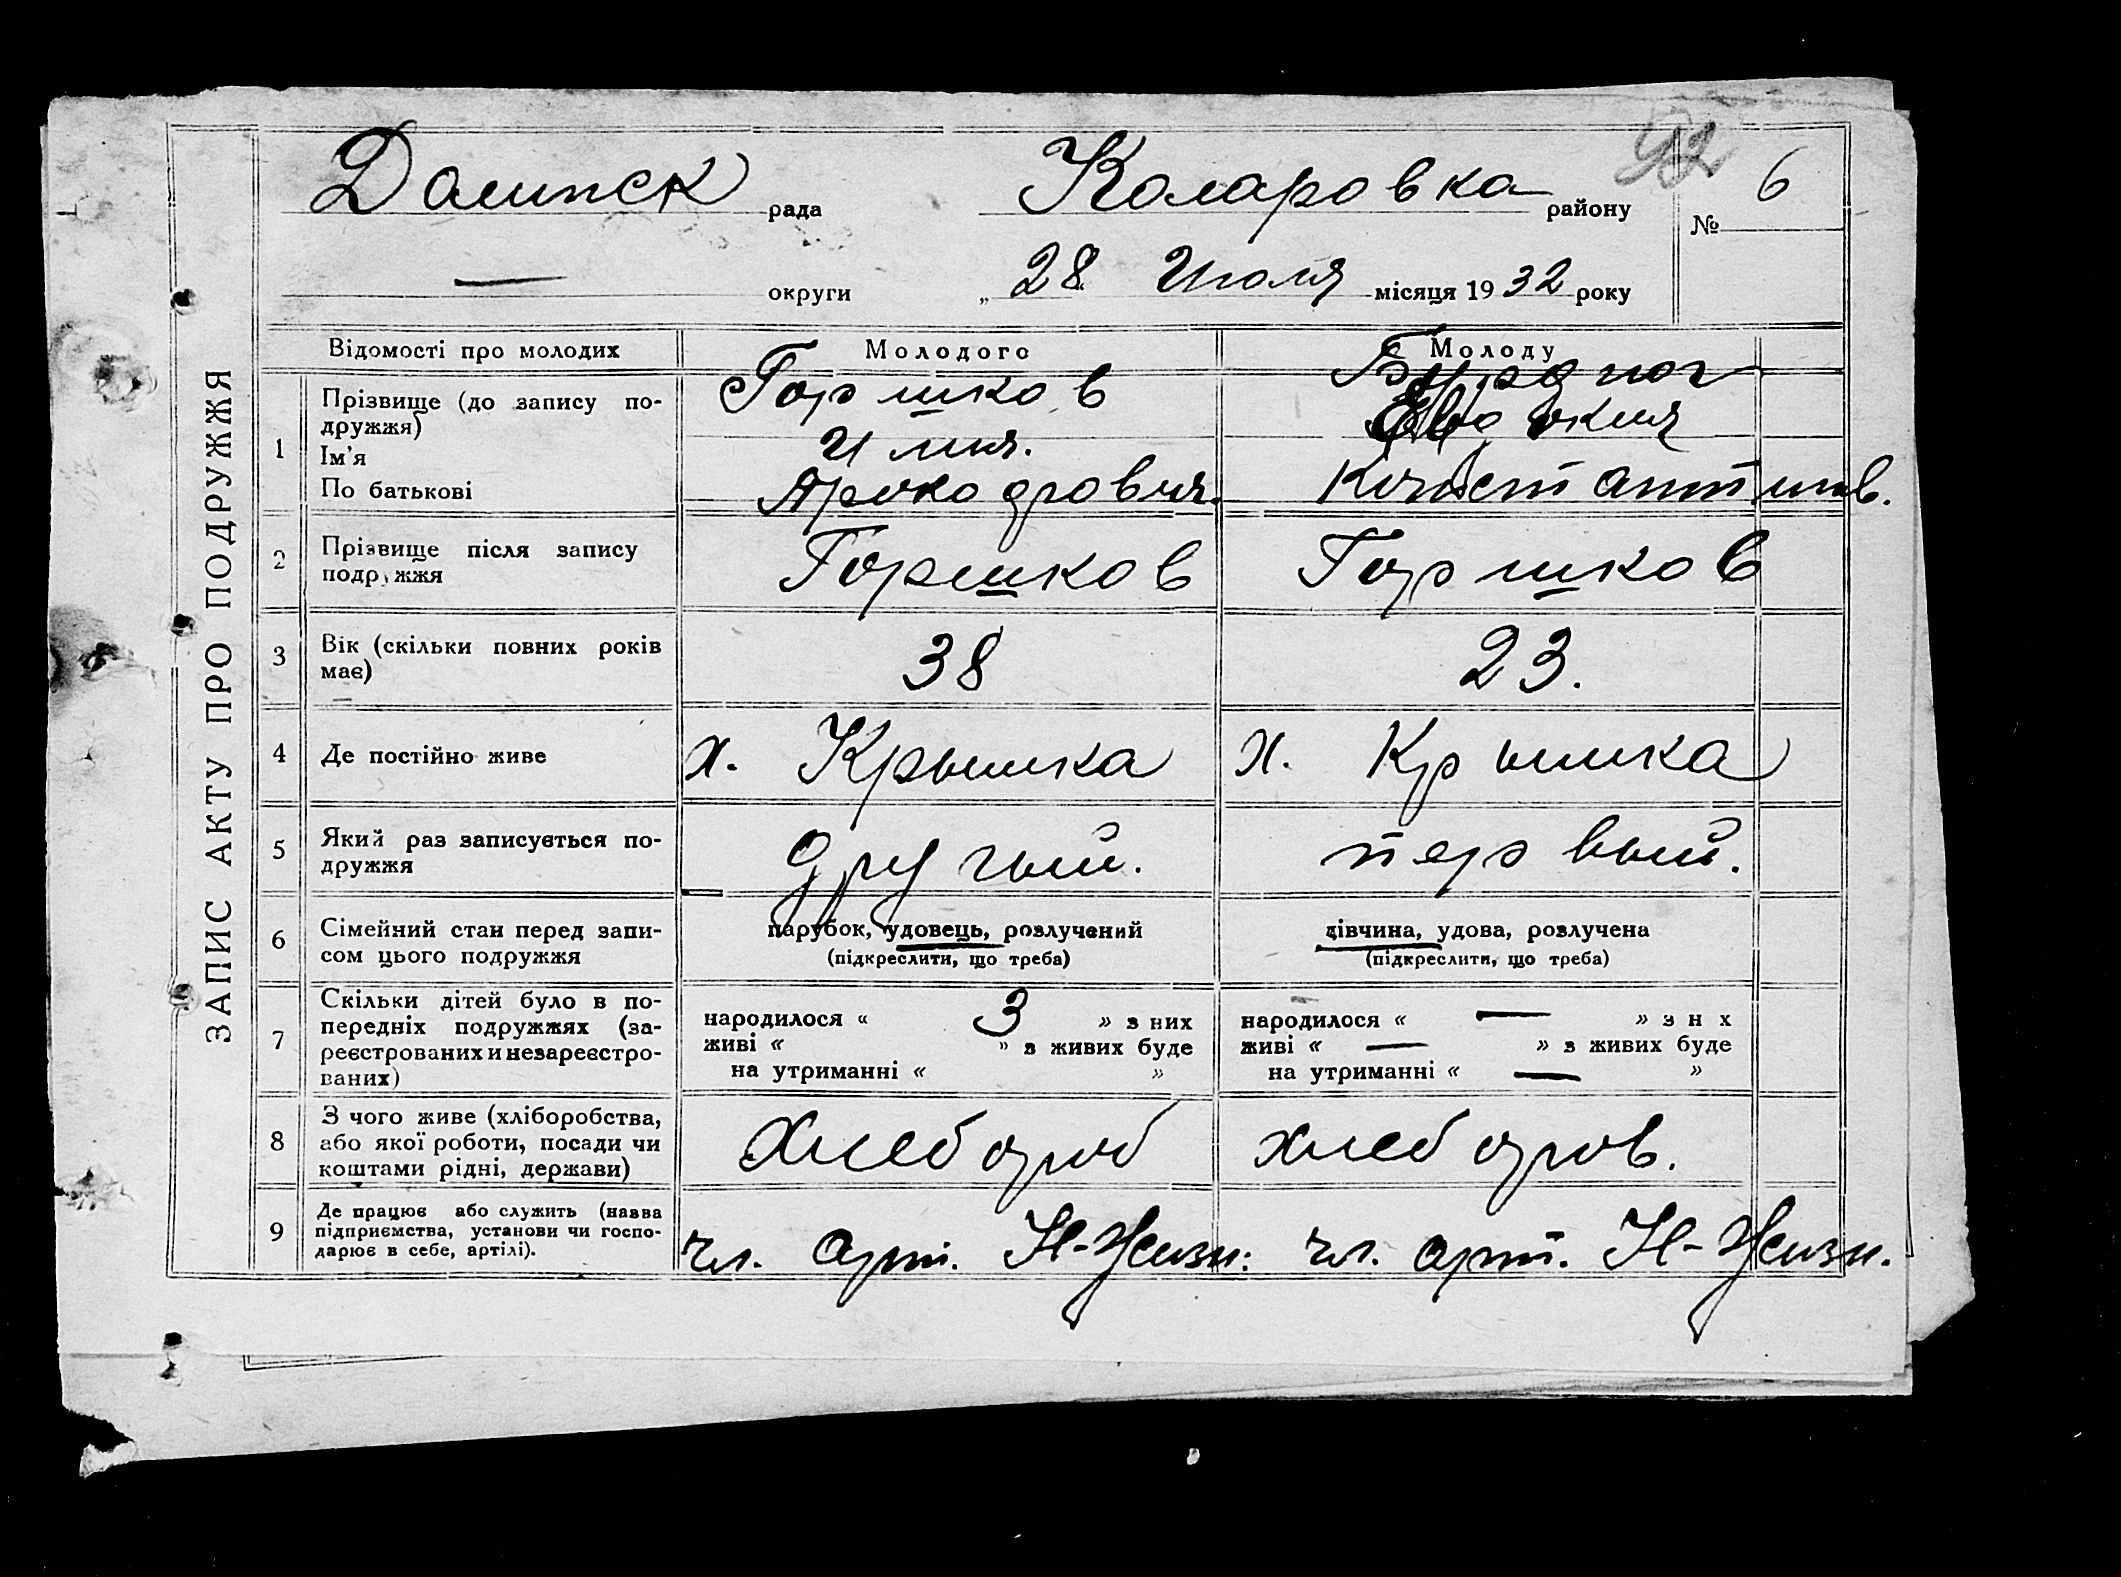 ЗАПИС АКТУ ПРО ПОДРУЖЖЯ
Долинск рада Коларовка району
42 № 6
— округи „ 28 Июля місяця 1932 року
Відомості про молодих Молодого Молоду
1 Прізвище (до запису по-
дружжя)
Ім'я
По батькові
Горшков
Илия.
Евдокия
Константинов.
2 Прізвище після запису
подружжя
Горшков Горшков
3 Вік (скільки повних років
має)
38 23.
4 Де постійно живе х. Крымка х. Крымка
5 Який раз записується по-
дружжя
другый. первый.
6 Сімейний стан перед запи-
сом цього подружжя
парубок, удовець, розлучений
(підкреслити, що треба)
дівчина, удова, розлучена
(підкреслити, що треба)
7 Скільки дітей було в по-
передніх подружжях (за-
реєстрованих и незареєстро-
ваних)
народилося « 3 » з них
живі « » з живих буде
на утриманні « »
народилося « — » з н х
живі « — » з живих буде
на утриманні « — »
8 З чого живе (хліборобства,
або якої роботи, посади чи
коштами рідні, держави)
Хлебороб хлеборов.
9 Де працює або служить (назва
підприємства, установи чи госпо-
дарює в себе, артілі).
чл. арт. Н-Жизн. чл. арт. Н-Жизн.